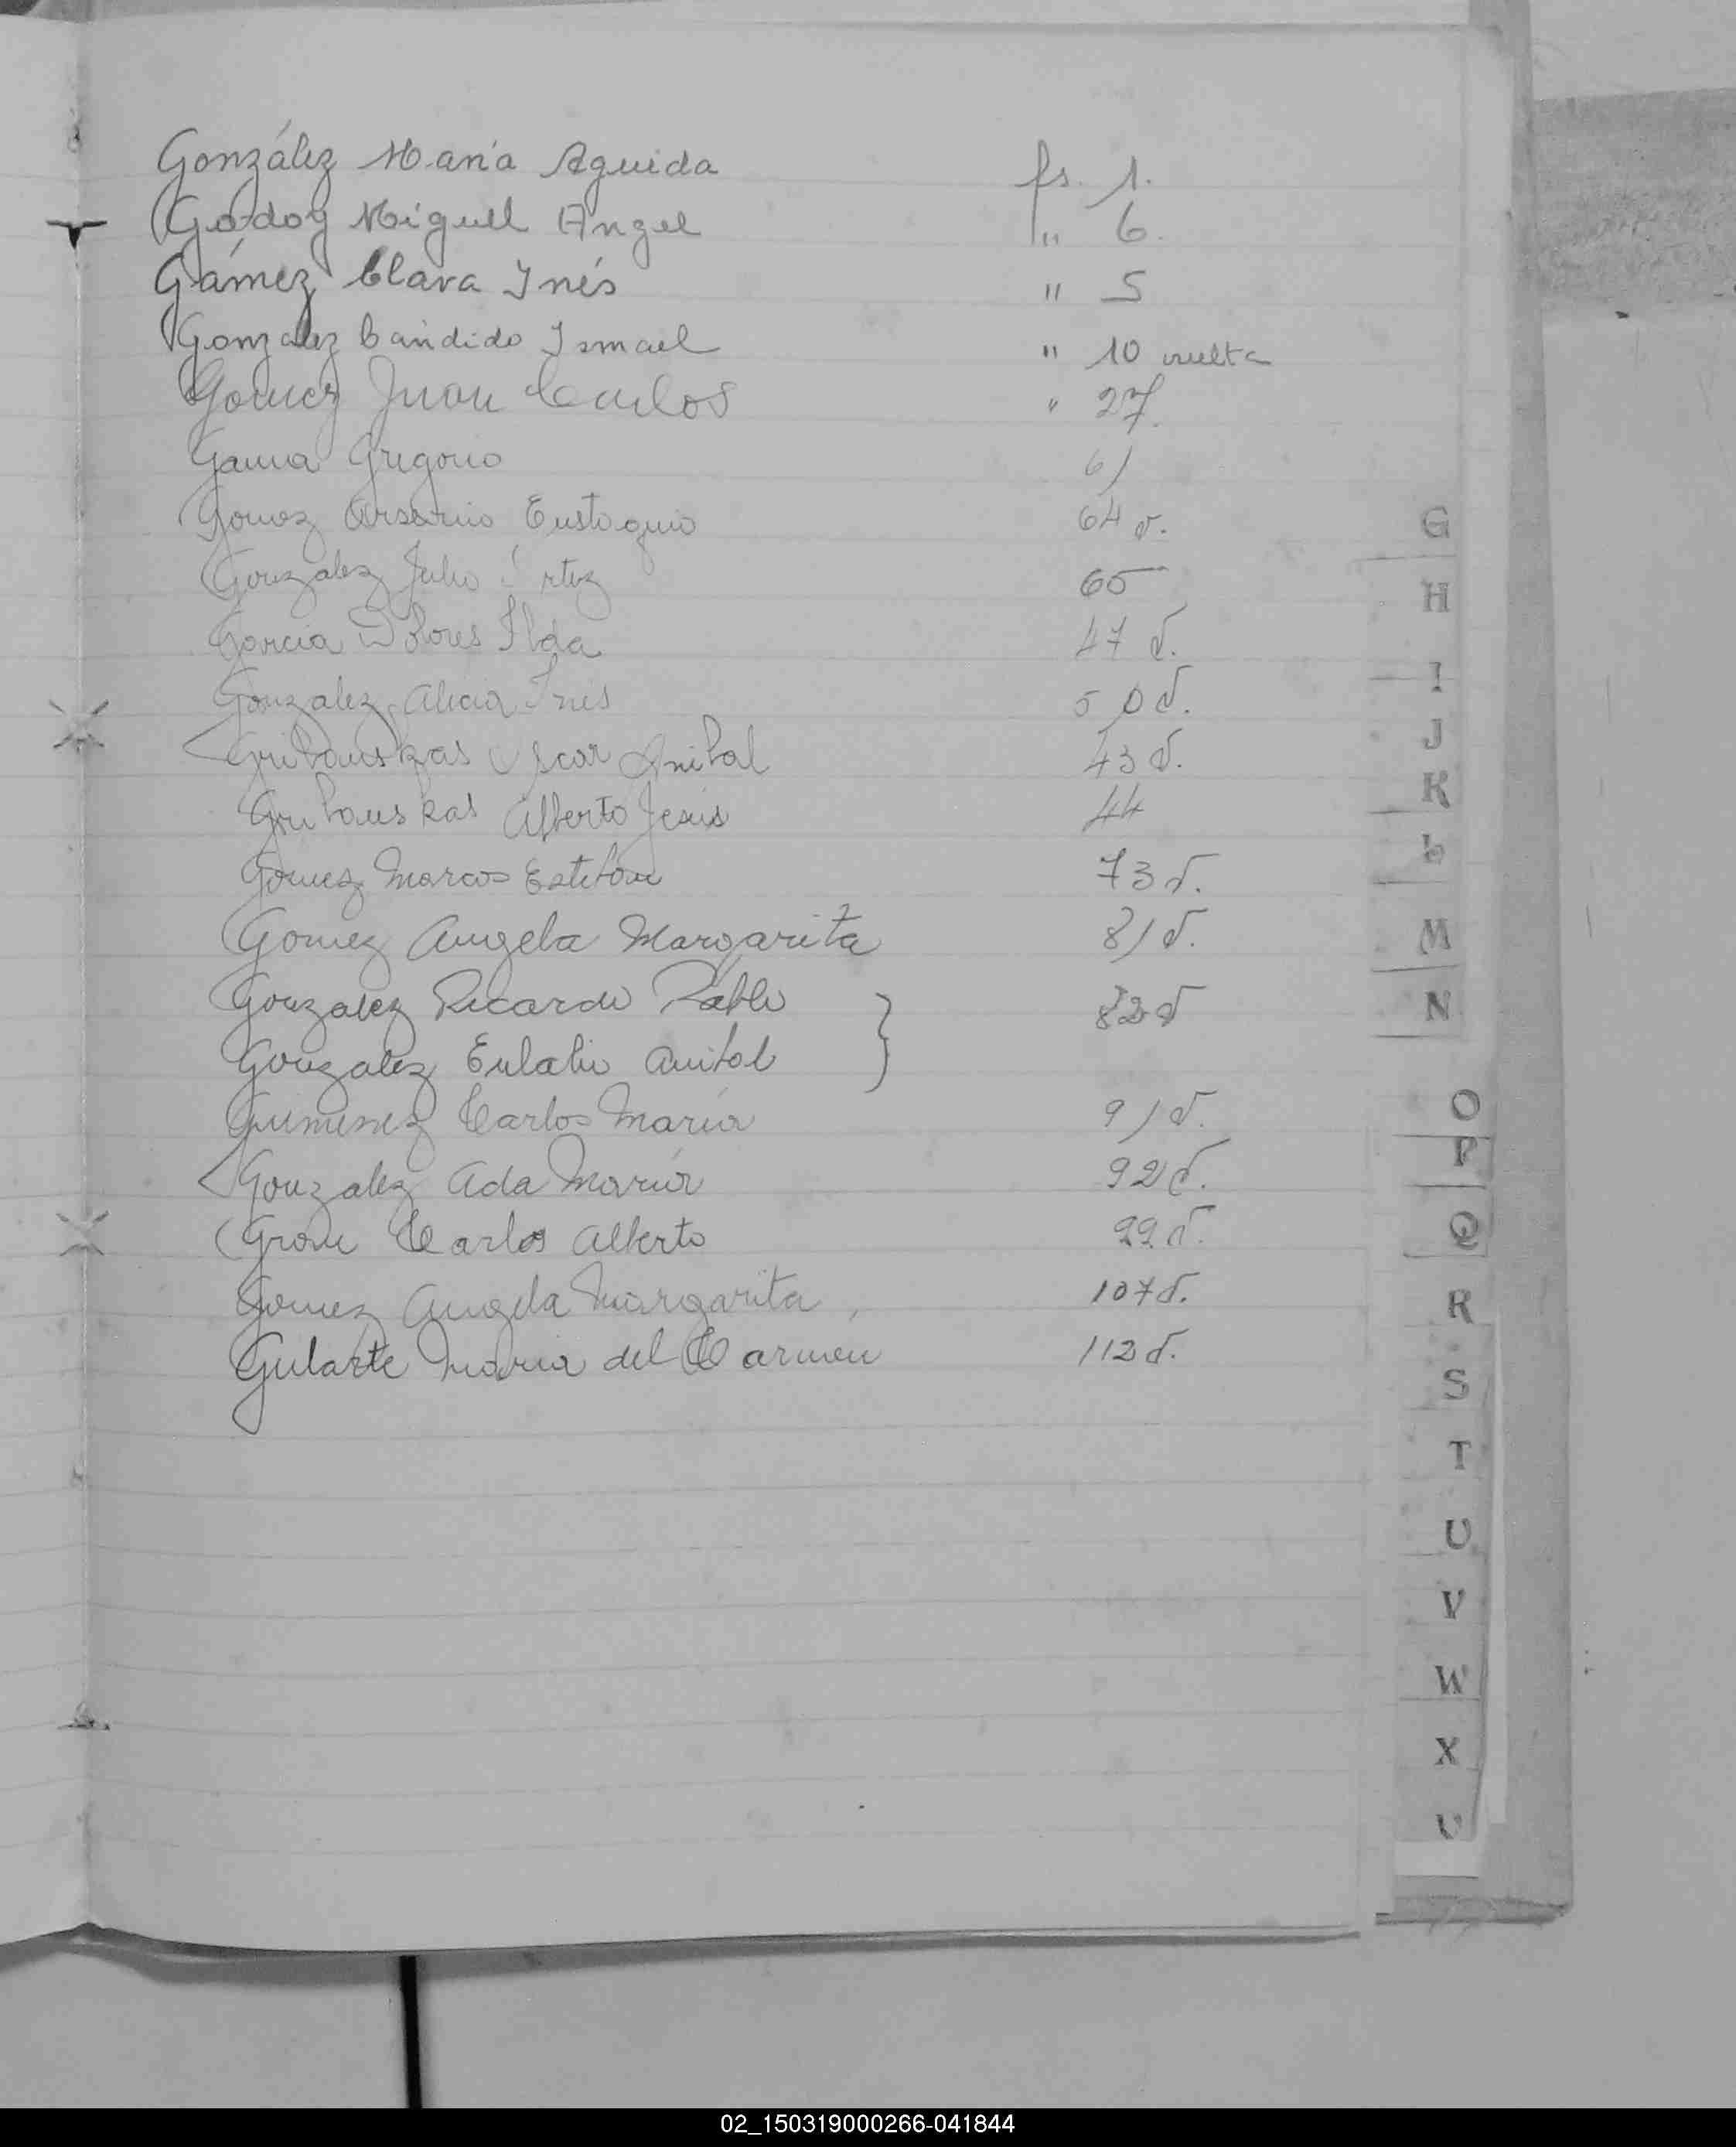 González María Aguida fs. 1.
Godoy Miguel Angel " 6.
Gámez Clara Inés " 5
Gonzalez Cándido Ismael " 10 vuelta
Gomez Juan Carlos " 27.
Gauna Gregorio 61
Gomez Arsenio Eustaquio 64 v.
Gonzalez Julio 65
Garcia Dolores Ilda 47 v.
Gonzalez Alicia Ines 50 v.
Gribauskas Oscar Anibal 43 v.
Gribauskas Alberto Jesús 44
Gomez Marcos Esteban 73 v.
Gomez Angela Margarita 81 v.
Gonzalez Ricardo Pablo } 82 v
Gonzalez Eulalio Anibal
Gimenez Carlos María 91 v.
Gonzalez Ada María 92 v.
Carlos Alberto 99 v.
Gomez Angela Margarita 107 v.
Gularte Maria del Carmen 112 v.
G
H
I
J
K
L
M
N
O
P
Q
R
S
T
U
V
W
X
02_150319000266-041844